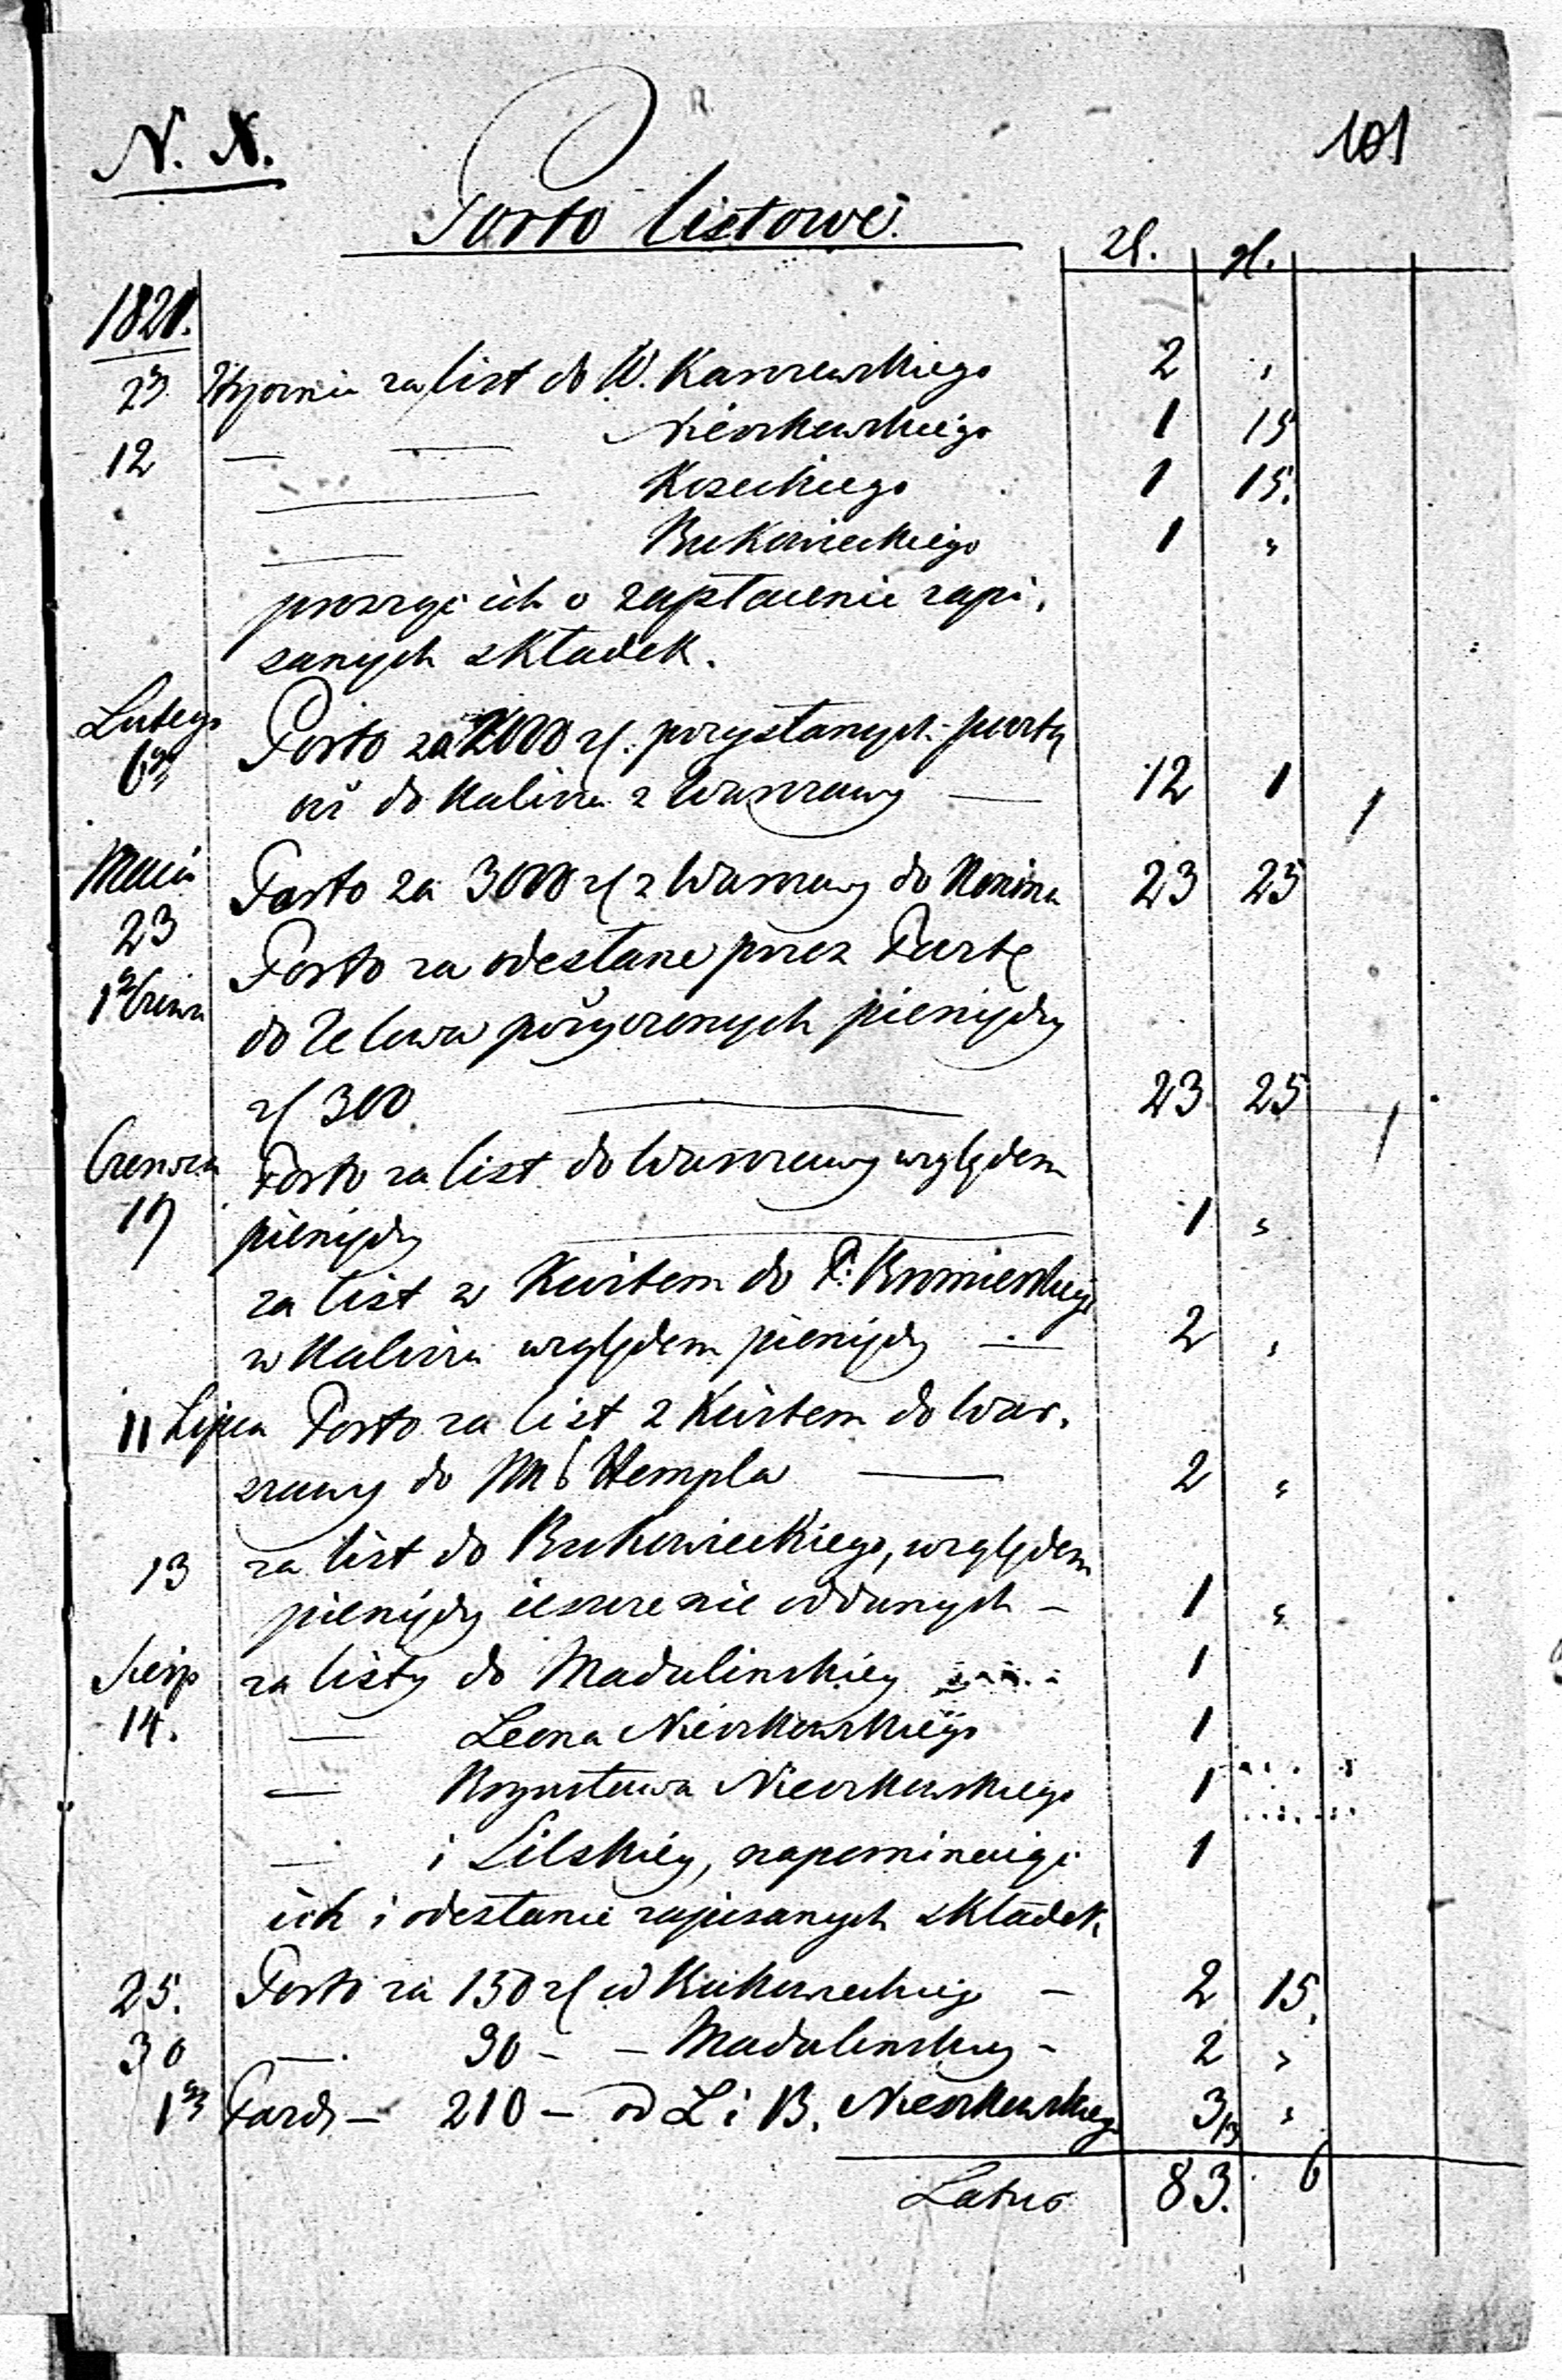 N. X.
101
Porto listowe.
zł. gr.
1821.
23 Stycznia za list do W. Karczewskiego 2 "
12 — — Nieszkowskiego 1 15
— Kozeckiego 1 15.
— Bukowieckiego 1 "
prosząc ich o zapłacenie zapi-
sanych składek.
Lutego
6go Porto za 2000 zł. przysłanych pocztą
do Kalisza z Warszawy — 12 1
Maia
23 Porto za 3000 zł z Warszawy do Konina 23 25
1go Czerw Porto za odesłane przez Pocztę
do Zelowa pożyczonych pieniędzy
zł 300. — 23 25
Czerwca
19 Porto za list do Warszawy względem
pieniędzy — 1 "
za list z Kwitem do P. Bromierskiego
w Kaliszu względem pieniędzy — 2 "
11 Lipca Porto za list z Kwitem do War-
szawy do Hempla — 2 "
13 za list do Bukowieckiego, względem
pieniędzy ieszcze nie oddanych — 1 "
Sierp
14. za listy do Madalinskiey 1
— Leona Nieszkowskiego 1
— Bogusława Nieszkowskiego 1
— i Lilskiey, napominaiąc
1
ich i odesłanie zapisanych składek.
25. Porto za 150 zł od Bukowieckiego — 2 15.
30 — 90 — — Madalinskiey — 2 "
1go Paźdz — 210 — od L i B. Nieszkowskiego 3 "
Latus 83. 6